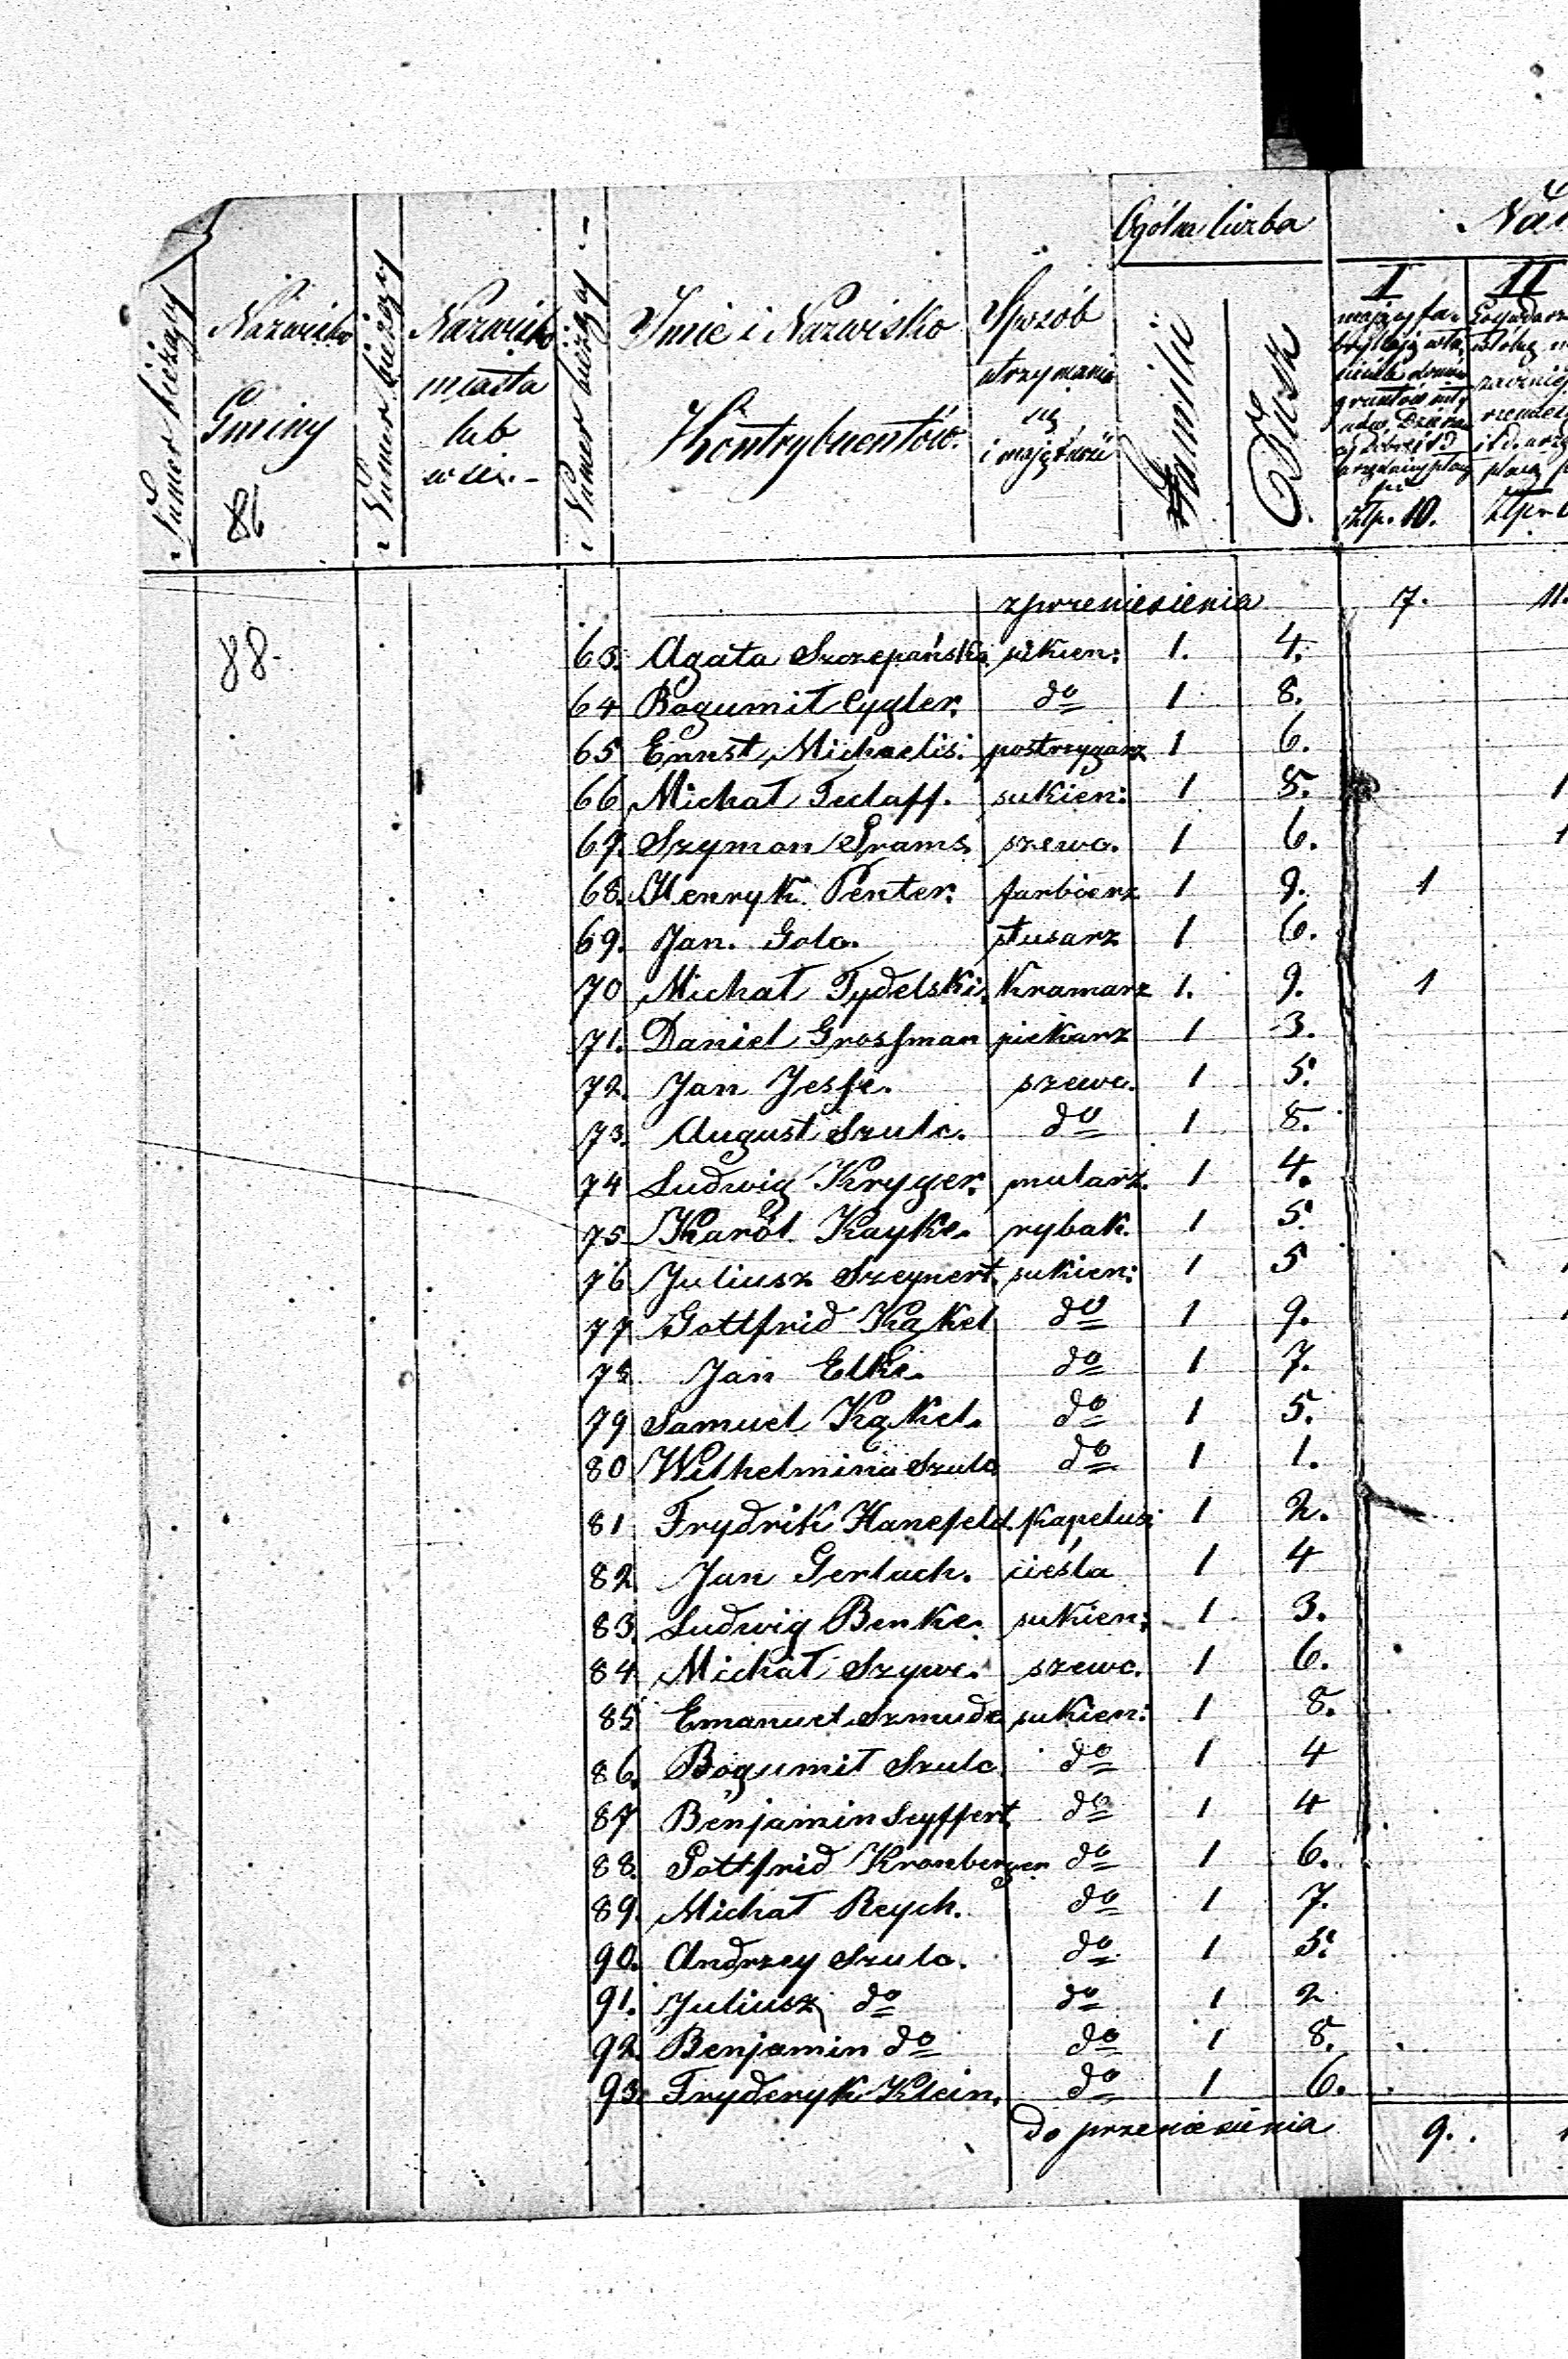 Numer bieżący
Nazwisko
Gminy
86
Numer bieżący
Nazwisko
miasta
lub
wsi.-
Numer bieżący
Imie i Nazwisko
Kontrybuentów.
Sposób
utrzymania
się
i majętności
Ogólna liczba
Familii
Dusz
I
II
Złp. 10.
88
z przeniesienia 7. 11.
63. Agata Szczepańska sukien: 1. 4.
64 Bogumił Cygler. do 1 8.
65 Ernst Michaelis. postrzygarz 1 6.
66 Michał Teclaff. sukien: 1 8. 1
67. Szymon Grams. szewc. 1 6. 1
68. Henryk Penter. farbierz 1 9. 1
69. Jan. Golc. słusarz 1 6.
70 Michał Tydelski. Kramarz 1. 9. 1
71. Daniel Grosfman piekarz 1 3.
72. Jan Jesfe. szewc. 1 5.
73. August Szulc. do 1 8.
74 Ludwig Kryger. mularz. 1 4.
75 Karól Kayke. rybak. 1 5.
76 Juliusz Szeynert. sukien: 1 5
77 Gottfrid Kąkel do 1 9.
78 Jan Elke. do 1 7.
79 Samuel Kąkel. do 1 5.
80 Wilhelmina Szulc do 1 1.
81 Frydrik Hanefeld. Kapelusz 1 2.
82. Jan Gerlach. cieśla 1 4
83. Ludwig Benke. sukien: 1 3.
84. Michał Szywc. szewc. 1 6.
85 Emanuel Szmude sukien: 1 8.
86. Bogumił Szulc do 1 4
87 Benjamin Seyffert do 1 4
88. Gottfrid Kronberger do 1 6.
89. Michał Reych. do 1 7.
90. Andrzey Szulc. do 1 5.
91. Juliusz do do 1 2
92. Benjamin do do 1 8.
93. Fryderyk Klein. do 1 6.
do przeniesienia 9.